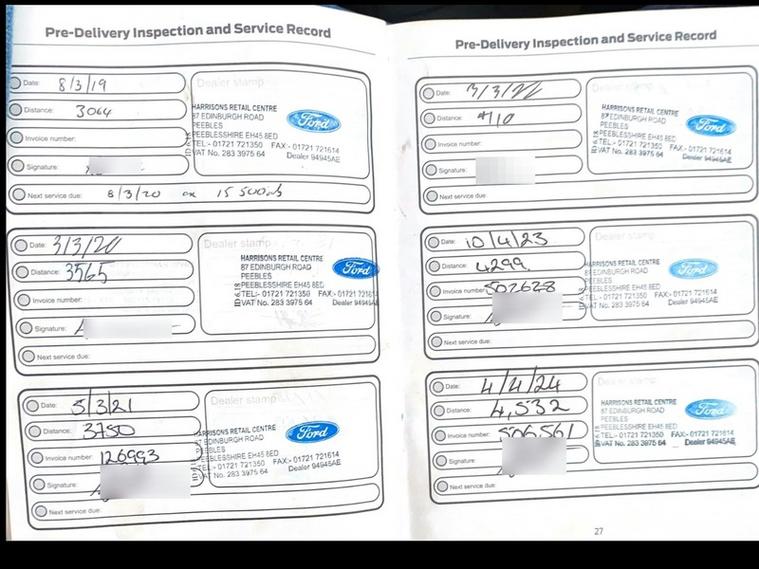 Pre-Delivery Inspection and Service Record
Date: 8/3/19
Distance: 3064
Invoice number:
Signature:
Next service due: 8/3/20 or 15 500mls
Dealer stamp
HARRISONS RETAIL CENTRE
87 EDINBURGH ROAD
PEEBLES
PEEBLESSHIRE EH45 8ED
TEL:- 01721 721350 FAX:- 01721 721614
VAT No. 283 3975 64 Dealer 94945AE
ID 6.18
Ford
Date: 3/3/20
Distance: 3565
Invoice number:
Signature:
Next service due:
Dealer stamp
HARRISONS RETAIL CENTRE
87 EDINBURGH ROAD
PEEBLES
PEEBLESSHIRE EH45 8ED
TEL:- 01721 721350 FAX:- 01721 721614
VAT No. 283 3975 64 Dealer 94945AE
ID 6.18
Ford
Date: 5/3/21
Distance: 3750
Invoice number: 126993
Signature:
Next service due:
Dealer stamp
HARRISONS RETAIL CENTRE
87 EDINBURGH ROAD
PEEBLES
PEEBLESSHIRE EH45 8ED
TEL:- 01721 721350 FAX:- 01721 721614
VAT No. 283 3975 64 Dealer 94945AE
Ford
Pre-Delivery Inspection and Service Record
Date: 3/3/22
Distance:
Invoice number:
Signature:
Next service due:
HARRISONS RETAIL CENTRE
87 EDINBURGH ROAD
PEEBLES
PEEBLESSHIRE EH45 8ED
TEL:- 01721 721350 FAX:- 01721 721614
VAT No. 283 3975 64 Dealer 94945AE
ID 6.18
Ford
Date: 10/4/23
Distance: 4299
Invoice number: 502628
Signature:
Next service due:
Dealer stamp
HARRISONS RETAIL CENTRE
87 EDINBURGH ROAD
PEEBLES
PEEBLESSHIRE EH45 8ED
TEL:- 01721 721350 FAX:- 01721 721614
VAT No. 283 3975 64 Dealer 94945AE
ID 6.18
Ford
Date: 4/4/24
Distance: 4,532
Invoice number: 506,561
Signature:
Next service due:
Dealer stamp
HARRISONS RETAIL CENTRE
87 EDINBURGH ROAD
PEEBLES
PEEBLESSHIRE EH45 8ED
TEL:- 01721 721350 FAX:- 01721 721614
VAT No. 283 3975 64 Dealer 94945AE
ID 6.18
Ford
27